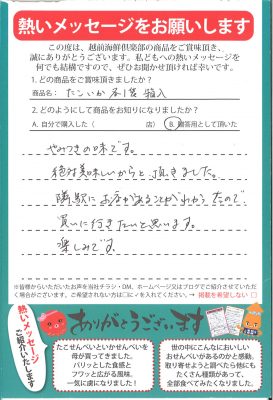 熱いメッセージをお願いします
この度は、越前海鮮倶楽部の商品をご賞味頂き、
誠にありがとうございます。私どもへの熱いメッセージを
何でも結構ですので、ぜひお聞かせ頂ければ幸いです。
1. どの商品をご賞味頂きましたか?
商品名: たこいか 箱入
2. どのようにして商品をお知りになりましたか?
A. 自分で購入した( 店) B. 贈答用として頂いた
やみつきの味です。
絶対美味しいからと頂きました。
隣駅にお店があることがわかったので、
買いに行きたいと思います。
楽しみです。
※皆様からいただいたお声を当社チラシ・DM、ホームページ又はブログでご紹介させていただ
く場合がございます。ご希望されない方は□に✓を入れてください。→ 掲載を希望しない □
熱いメッセージ
ご紹介いたします
ありがとうございます
たこせんべいといかせんべいを
母が買ってきました。
パリッとした食感と
フワッと広がる風味。
一気に虜になりました!
世の中にこんなにおいしい
おせんべいがあるのかと感動。
取り寄せようと調べたら他にも
たくさん種類があって、
全部食べてみたくなりました。